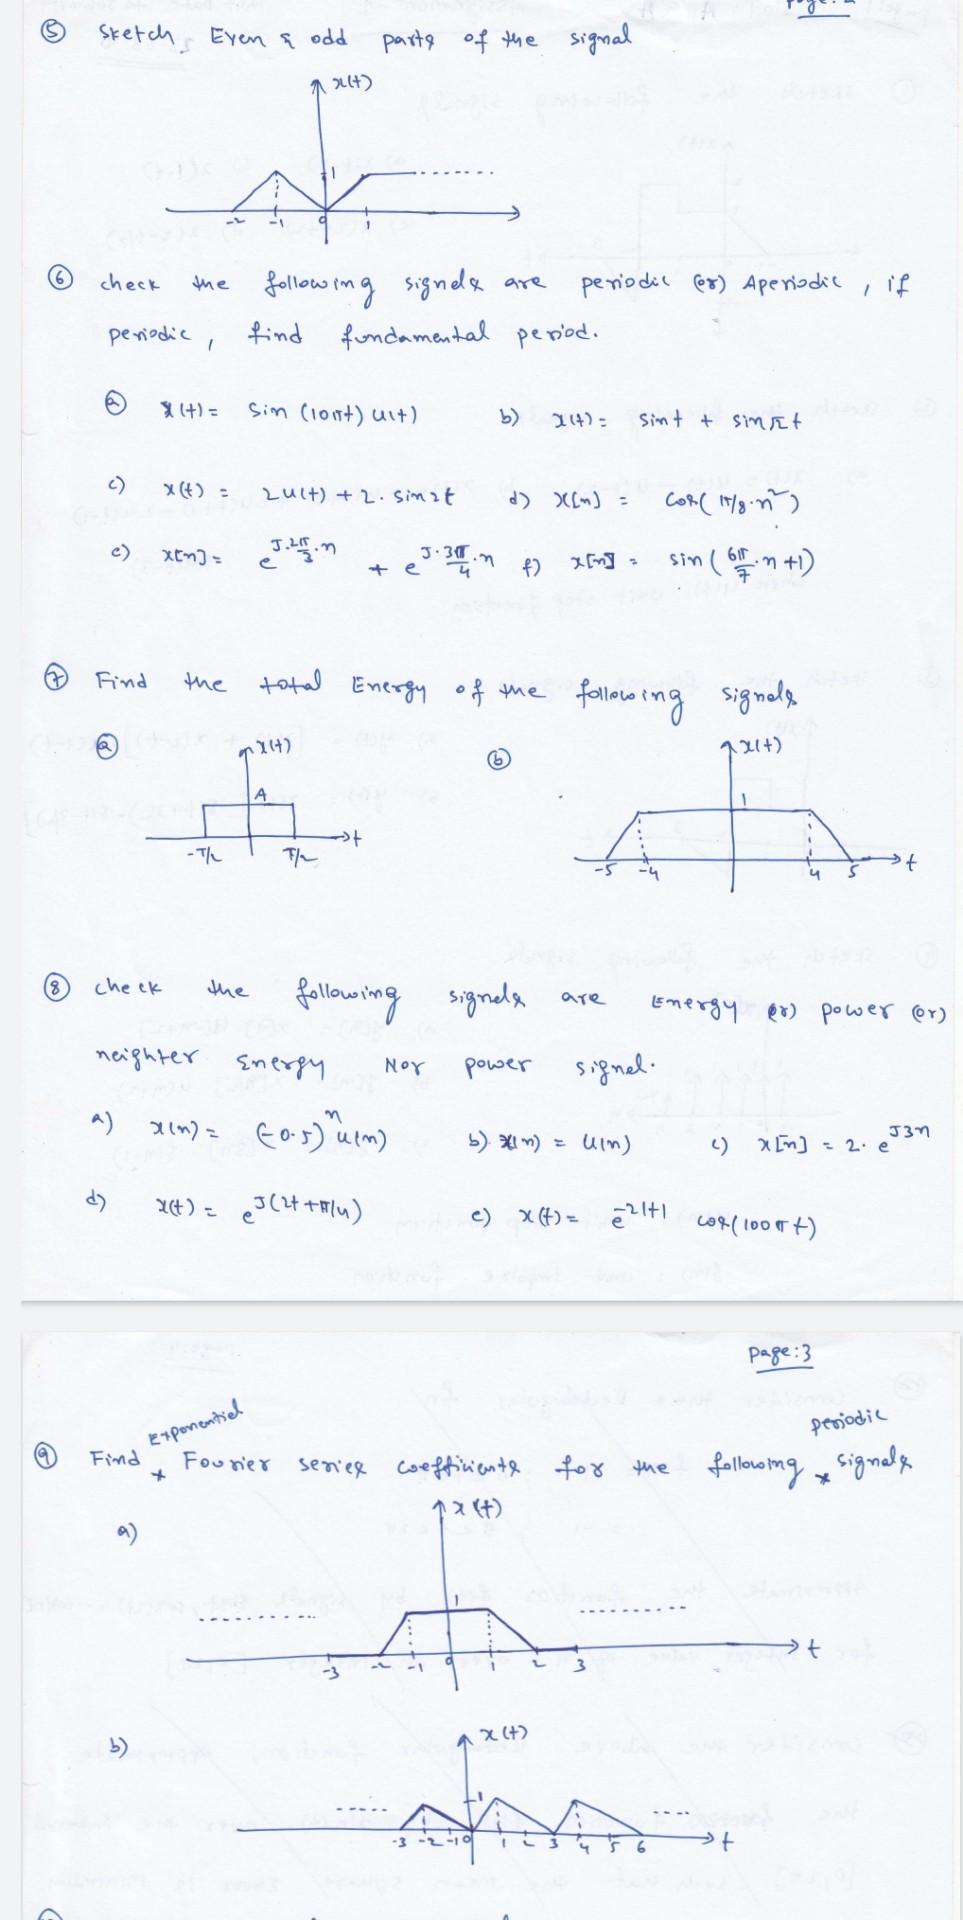 Page: 2
⑤ Sketch Even & odd parts of the signal
x(t)
1
-2 -1 0 1
⑥ check the following signals are periodic (or) Aperiodic, if
periodic, find fundamental period.
ⓐ x(t) = sin (10πt) u(t) b) x(t) = sint + sin√2 t
c) x(t) = 2u(t) + 2. sin2t d) x[n] = cos(π/8.n²)
e) x[n] = e^J.2π/3.n + e^J.3π/4.n f) x[n] = sin(6π/7.n+1)
⑦ Find the total Energy of the following signals
ⓐ x(t) ⓑ x(t)
A 1
-T/2 T/2 t -5 -4 4 5 t
⑧ check the following signals are Energy (or) power (or)
neighter Energy Nor power signal.
a) x(n) = (-0.5)^n u(n) b) x(n) = u(n) c) x[n] = 2. e^J3n
d) x(t) = e^J(2t+π/4) e) x(t) = e^-2|t| cos(100πt)
page:3
Exponential periodic
⑨ Find Fourier series coefficients for the following signals
a) x(t)
1
-3 -2 -1 0 1 2 3 t
b) x(t)
1
-3 -2 -1 0 1 2 3 4 5 6 t